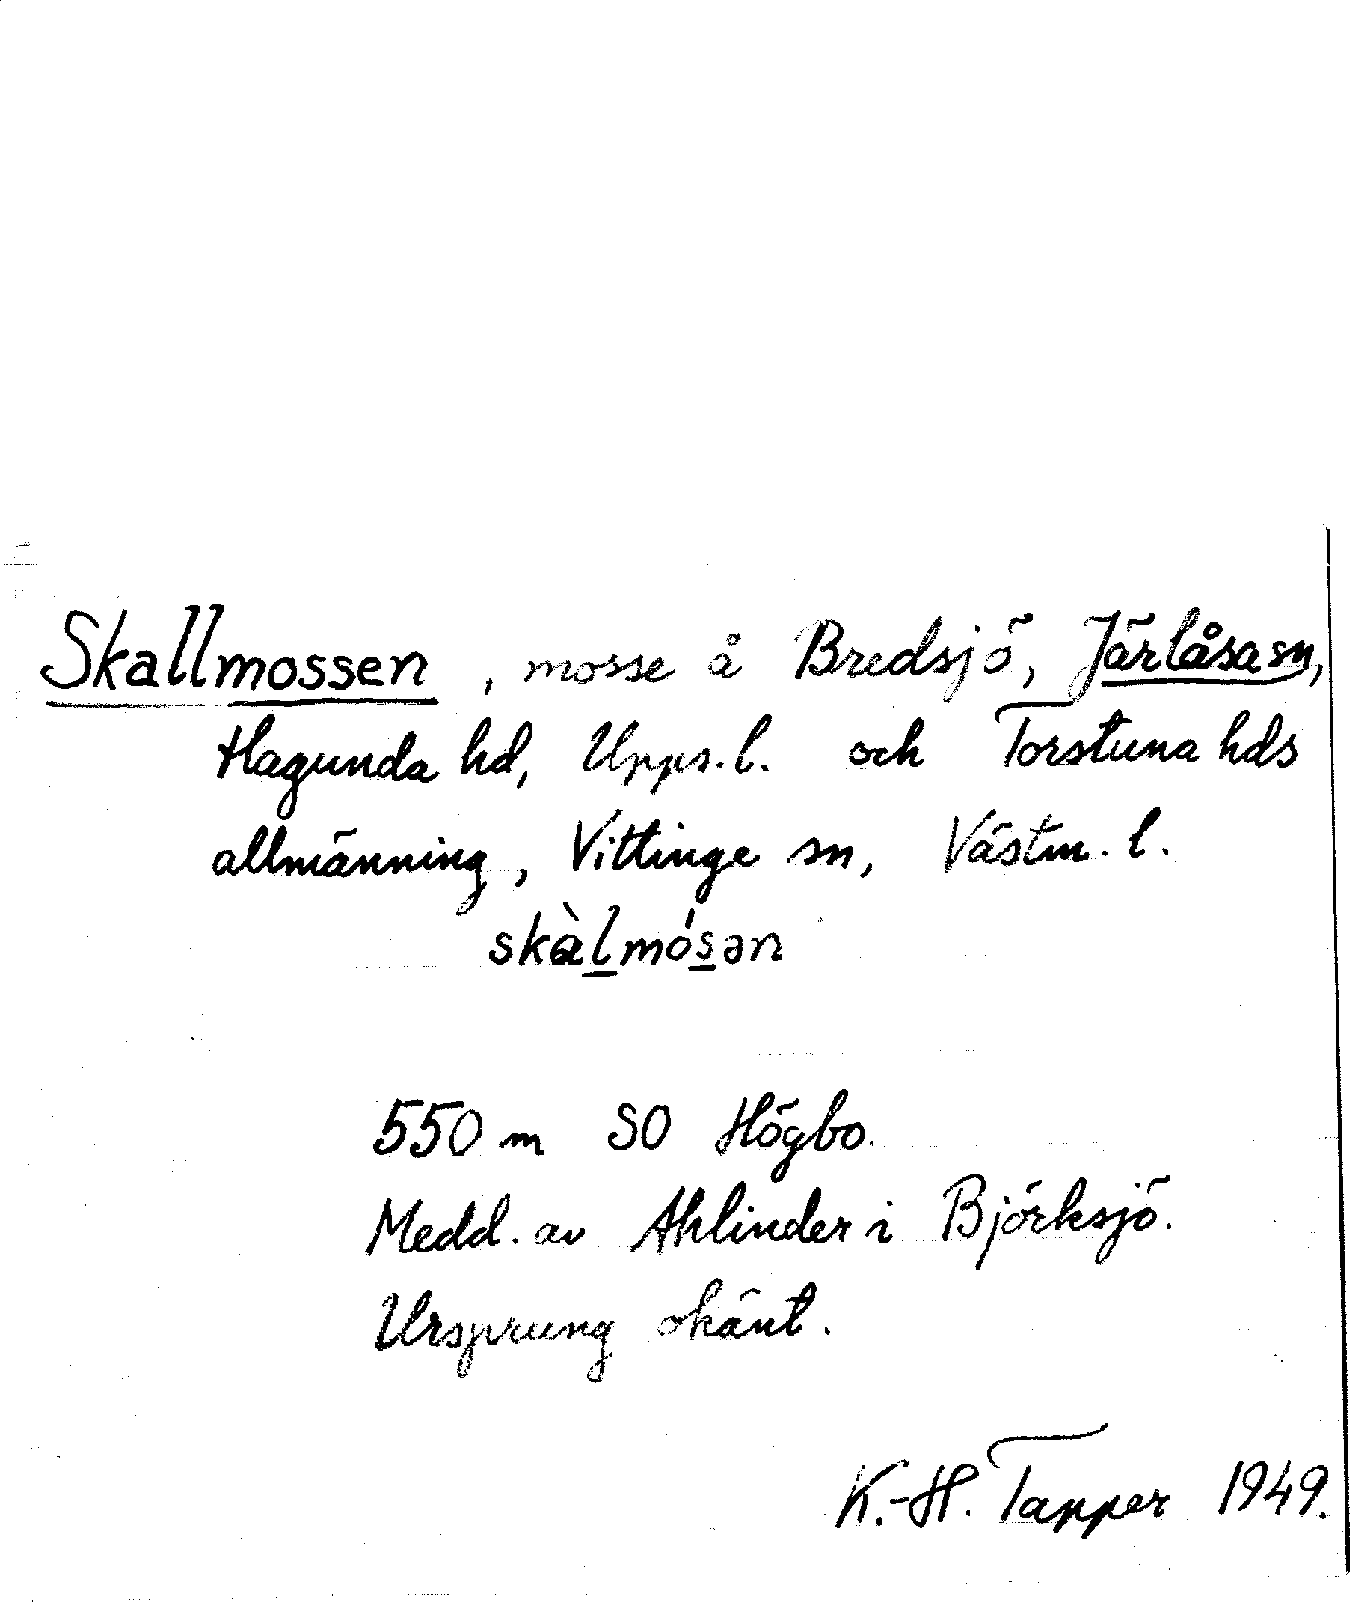 Skallmossen, mosse å Bredsjö, Järlåsa sn,
Hagunda hd, Upps. l. och Torstuna hds
allmänning, Vittinge sn, Västm. l.
skàlmósən
550 m SO Högbo.
Medd. av Ahlinder i Björksjö.
Ursprung okänt.
K.-H. Tapper 1949.